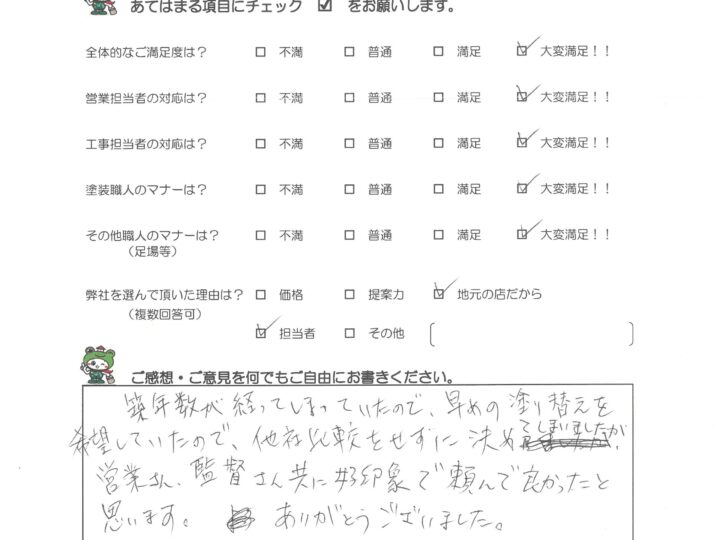 あてはまる項目にチェック ☑ をお願いします。
全体的なご満足度は? □ 不満 □ 普通 □ 満足 ☑ 大変満足!!
営業担当者の対応は? □ 不満 □ 普通 □ 満足 ☑ 大変満足!!
工事担当者の対応は? □ 不満 □ 普通 □ 満足 ☑ 大変満足!!
塗装職人のマナーは? □ 不満 □ 普通 □ 満足 ☑ 大変満足!!
その他職人のマナーは? □ 不満 □ 普通 □ 満足 ☑ 大変満足!!
(足場等)
弊社を選んで頂いた理由は? □ 価格 □ 提案力 ☑ 地元の店だから
(複数回答可)
☑ 担当者 □ その他 [ ]
ご感想・ご意見を何でもご自由にお書きください。
築年数が経ってしまっていたので、早めの塗り替えを
希望していたので、他社比較をせずに決めてしまいましたが、
営業さん、監督さん共に好印象で頼んで良かったと
思います。 ありがとうございました。